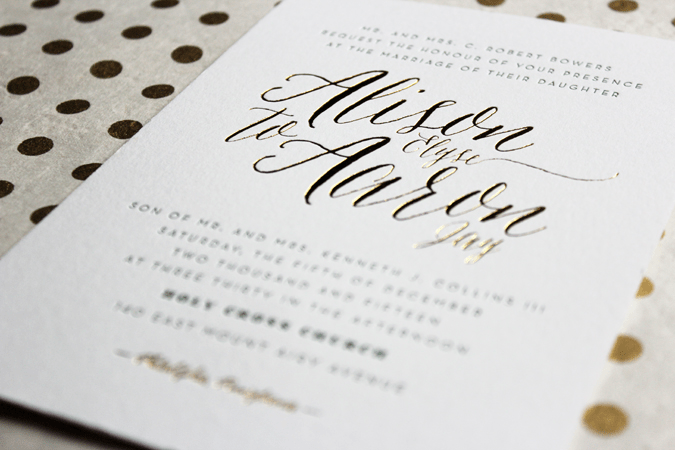 MR. AND MRS. C. ROBERT BOWERS
REQUEST THE HONOUR OF YOUR PRESENCE
AT THE MARRIAGE OF THEIR DAUGHTER
Alison
Elyse
to Aaron
Jay
SON OF MR. AND MRS. KENNETH J. COLLINS III
SATURDAY, THE FIFTH OF DECEMBER
TWO THOUSAND AND FIFTEEN
AT THREE THIRTY IN THE AFTERNOON
HOLY CROSS CHURCH
140 EAST MOUNT AIRY AVENUE